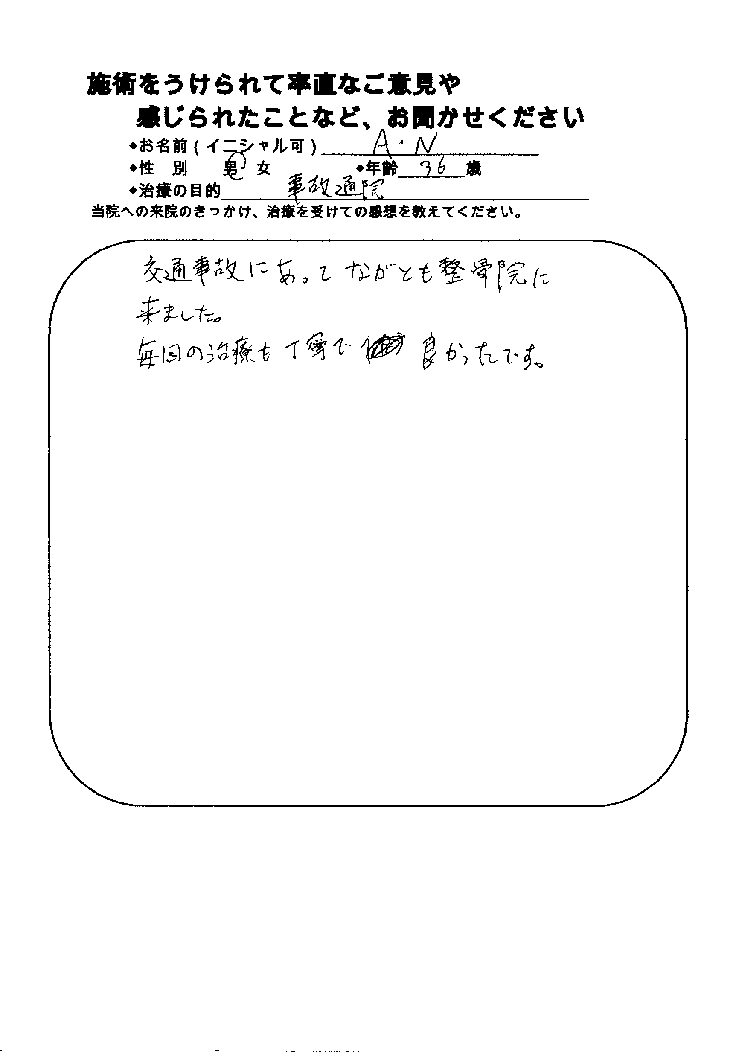 施術をうけられて率直なご意見や
感じられたことなど、お聞かせください
◆お名前(イニシャル可) A・N
◆性 別 男 女 ◆年齢 36 歳
◆治療の目的 事故通院
当院への来院のきっかけ、治療を受けての感想を教えてください。
交通事故にあって ながとも整骨院に
来ました。
毎回の治療も丁寧で 良かったです。